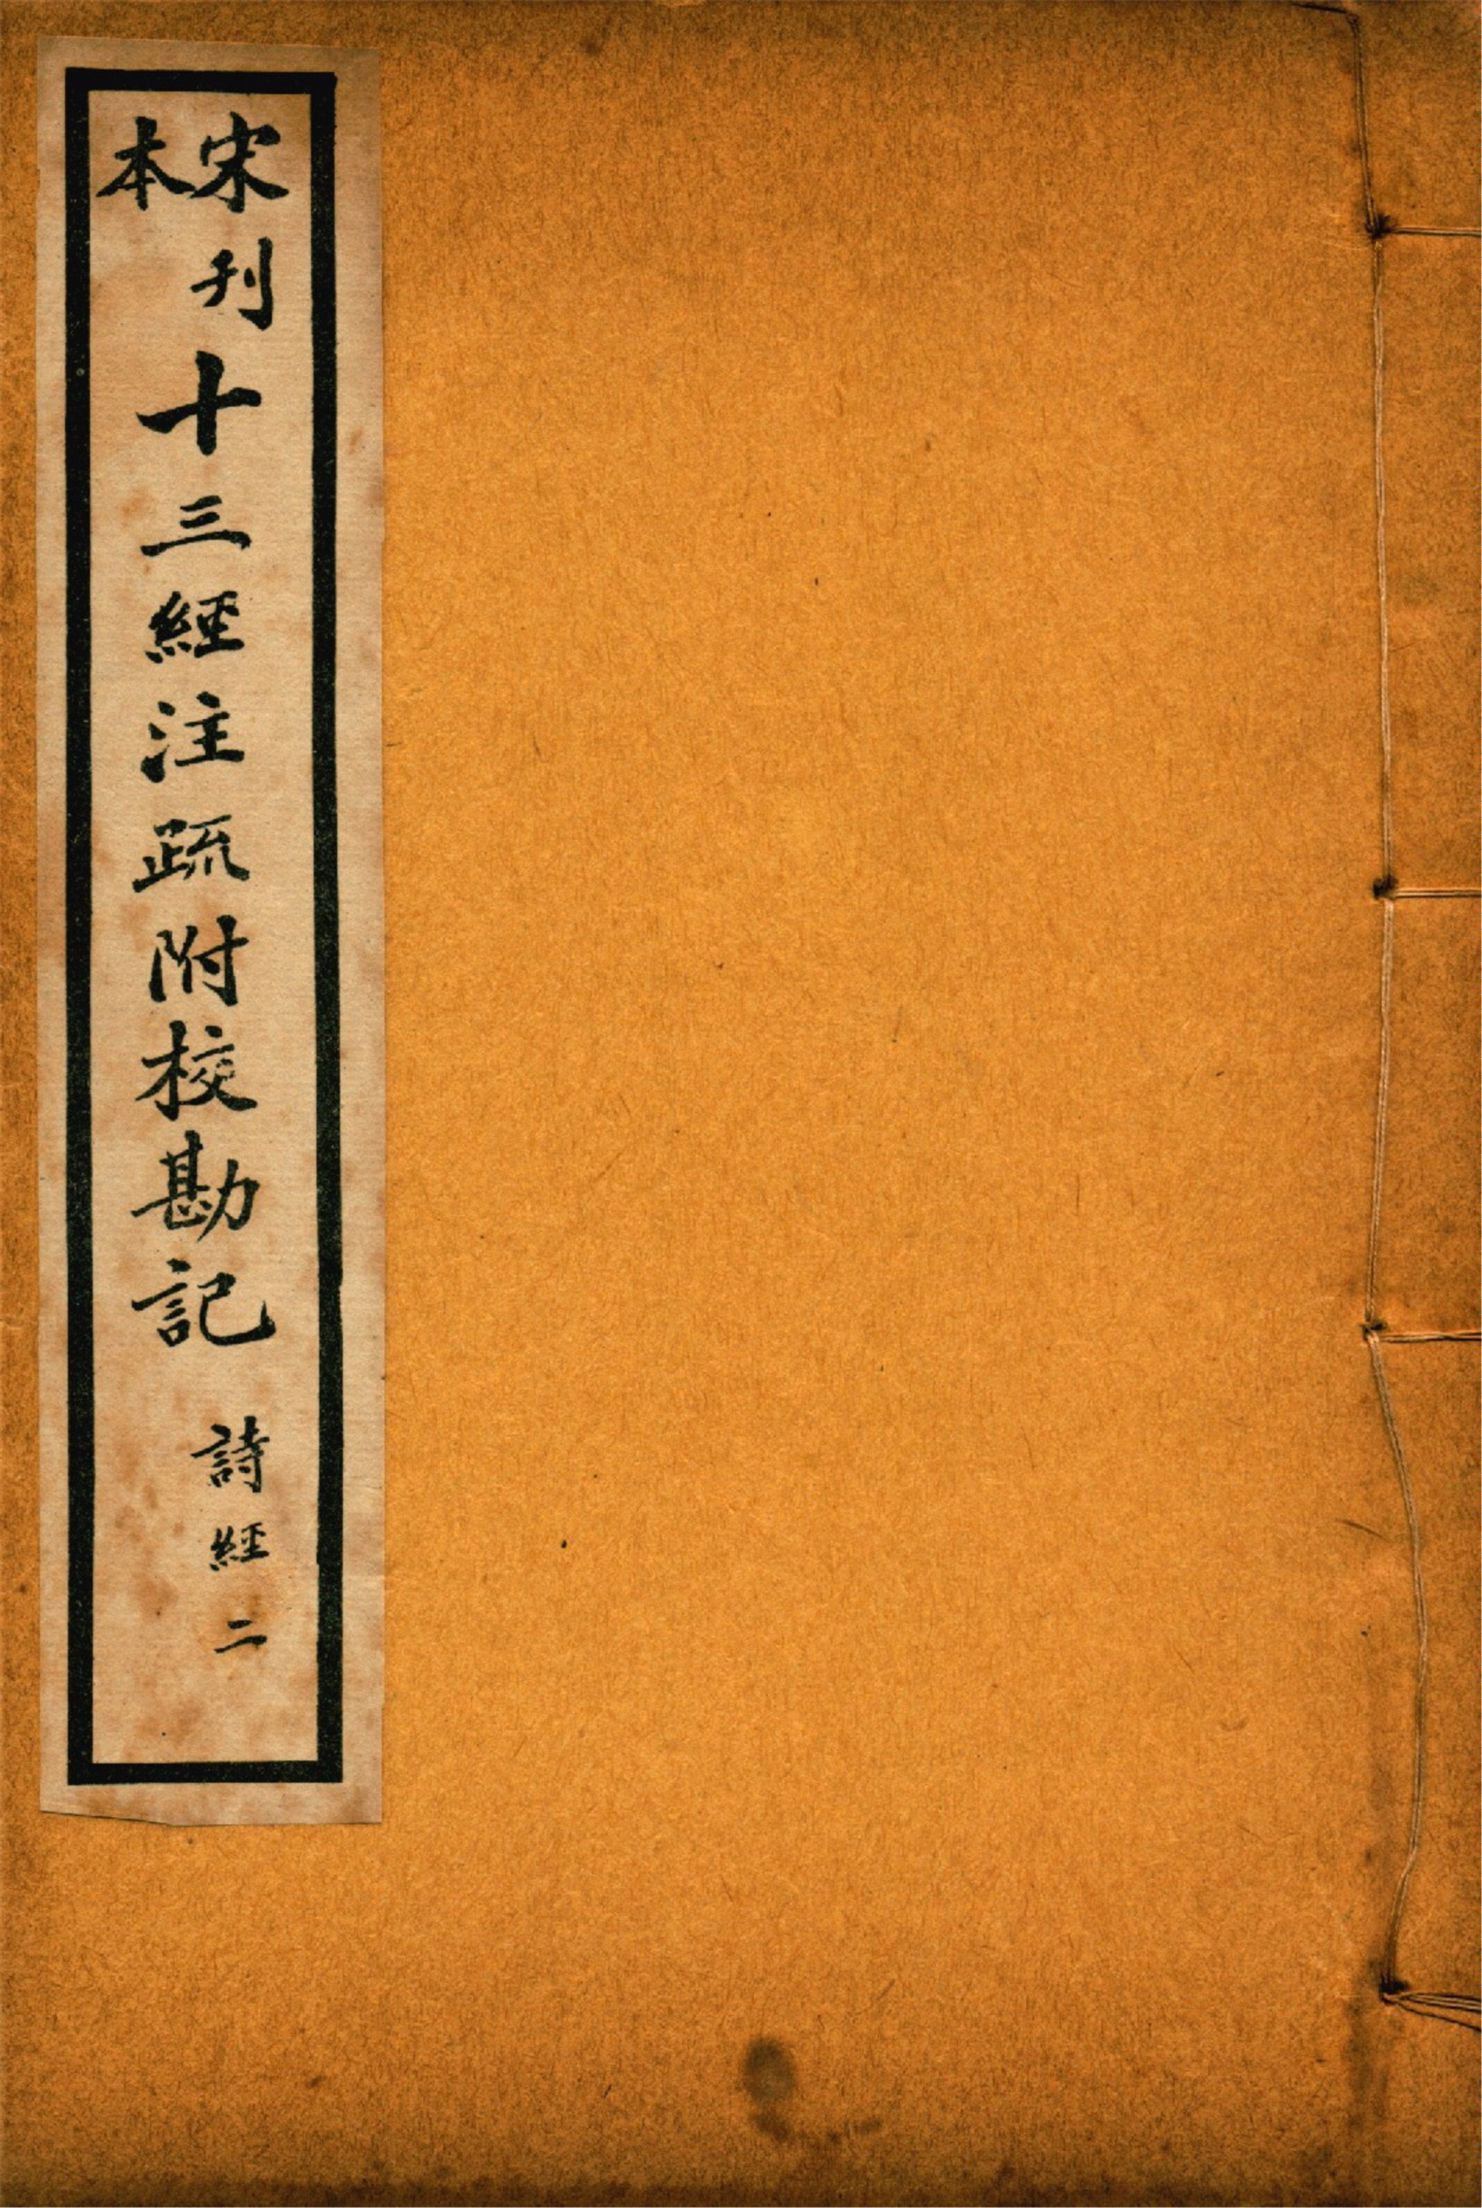 宋刊本
十三經注疏附校勘記
詩經二